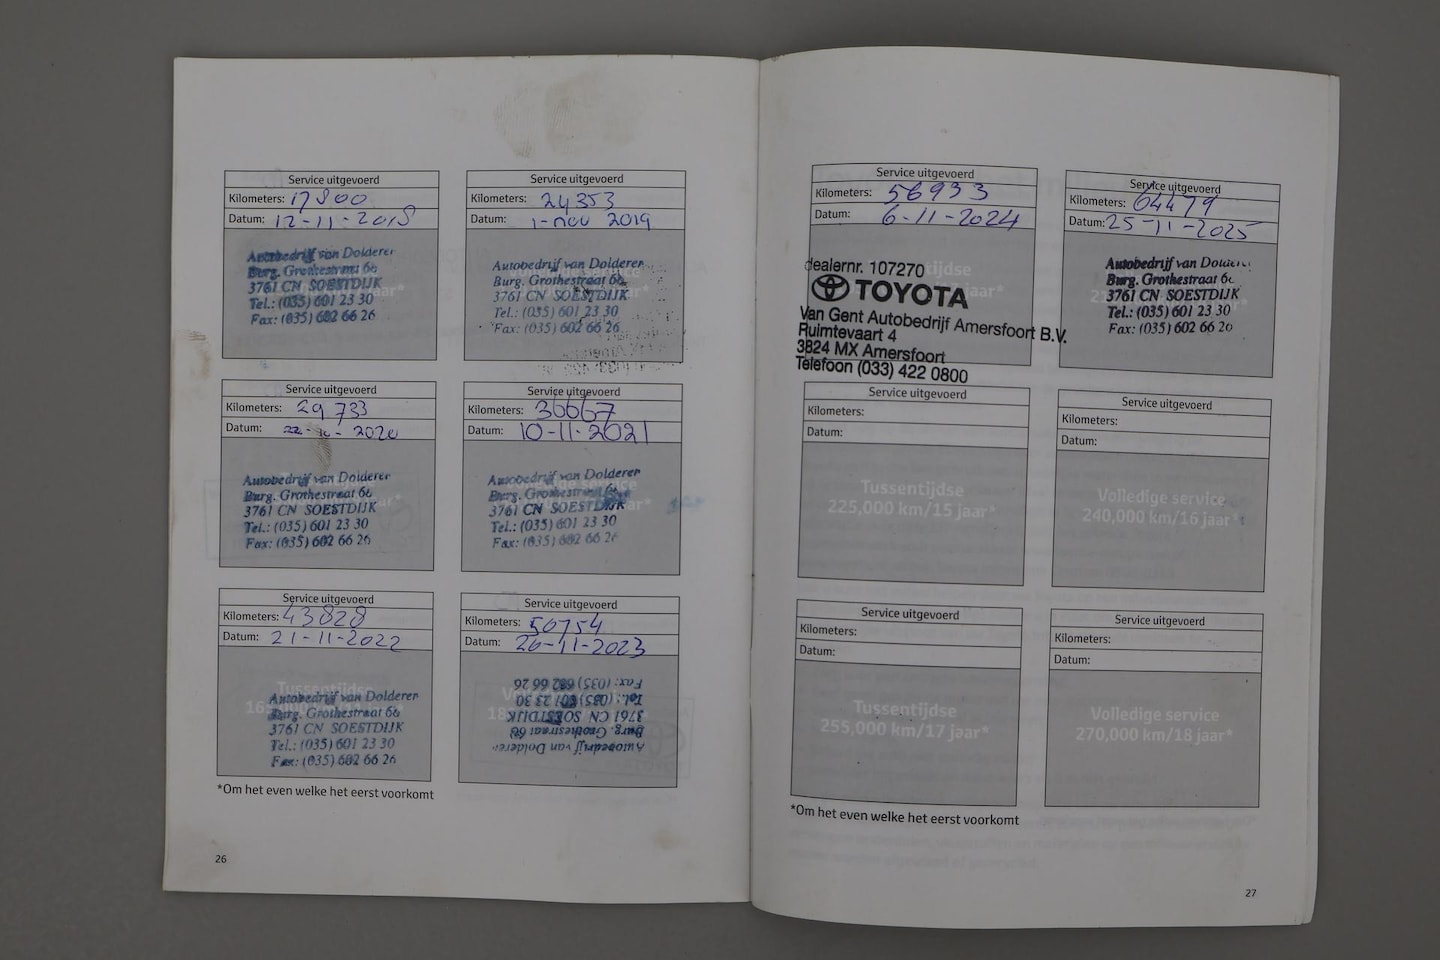 Service uitgevoerd
Kilometers: 17800
Datum: 12-11-2018
Autobedrijf van Dolderer
Burg. Grothestraat 66
3761 CN SOESTDIJK
Tel.: (035) 601 23 30
Fax: (035) 602 66 26
Service uitgevoerd
Kilometers: 24353
Datum: 1-nov 2019
Autobedrijf van Dolderer
Burg. Grothestraat 66
3761 CN SOESTDIJK
Tel.: (035) 601 23 30
Fax: (035) 602 66 26
Service uitgevoerd
Kilometers: 29733
Datum: 2020
Autobedrijf van Dolderer
Burg. Grothestraat 66
3761 CN SOESTDIJK
Tel.: (035) 601 23 30
Fax: (035) 602 66 26
Service uitgevoerd
Kilometers: 36667
Datum: 10-11-2021
Autobedrijf van Dolderer
Burg. Grothestraat 66
3761 CN SOESTDIJK
Tel.: (035) 601 23 30
Fax: (035) 602 66 26
Service uitgevoerd
Kilometers: 43828
Datum: 21-11-2022
Tussentijdse
Autobedrijf van Dolderer
Burg. Grothestraat 66
3761 CN SOESTDIJK
Tel.: (035) 601 23 30
Fax: (035) 602 66 26
Service uitgevoerd
Kilometers: 50754
Datum: 20-11-2023
Autobedrijf van Dolderer
Burg. Grothestraat 66
3761 CN SOESTDIJK
Tel.: (035) 601 23 30
Fax: (035) 602 66 26
*Om het even welke het eerst voorkomt
26
Service uitgevoerd
Kilometers: 56933
Datum: 6-11-2024
dealernr. 107270
TOYOTA
Van Gent Autobedrijf Amersfoort B.V.
Ruimtevaart 4
3824 MX Amersfoort
Telefoon (033) 422 0800
Service uitgevoerd
Kilometers: 64479
Datum: 25-11-2025
Autobedrijf van Dolderer
Burg. Grothestraat 66
3761 CN SOESTDIJK
Tel.: (035) 601 23 30
Fax: (035) 602 66 26
Service uitgevoerd
Kilometers:
Datum:
Tussentijdse
225,000 km/15 jaar*
Service uitgevoerd
Kilometers:
Datum:
Volledige service
240,000 km/16 jaar*
Service uitgevoerd
Kilometers:
Datum:
Tussentijdse
255,000 km/17 jaar*
Service uitgevoerd
Kilometers:
Datum:
Volledige service
270,000 km/18 jaar*
*Om het even welke het eerst voorkomt
27